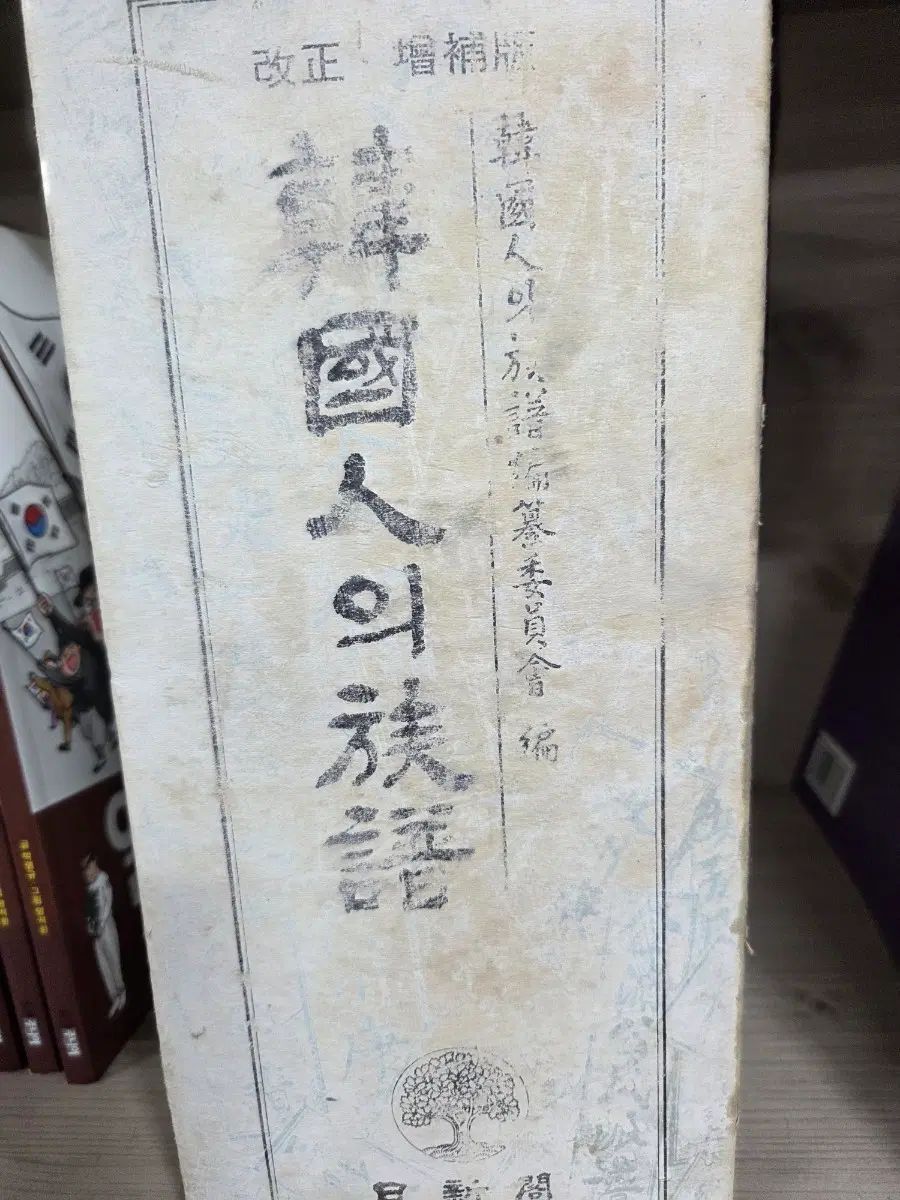 改正 增補版
韓國人의 族譜編纂委員會 編
韓國人의 族譜